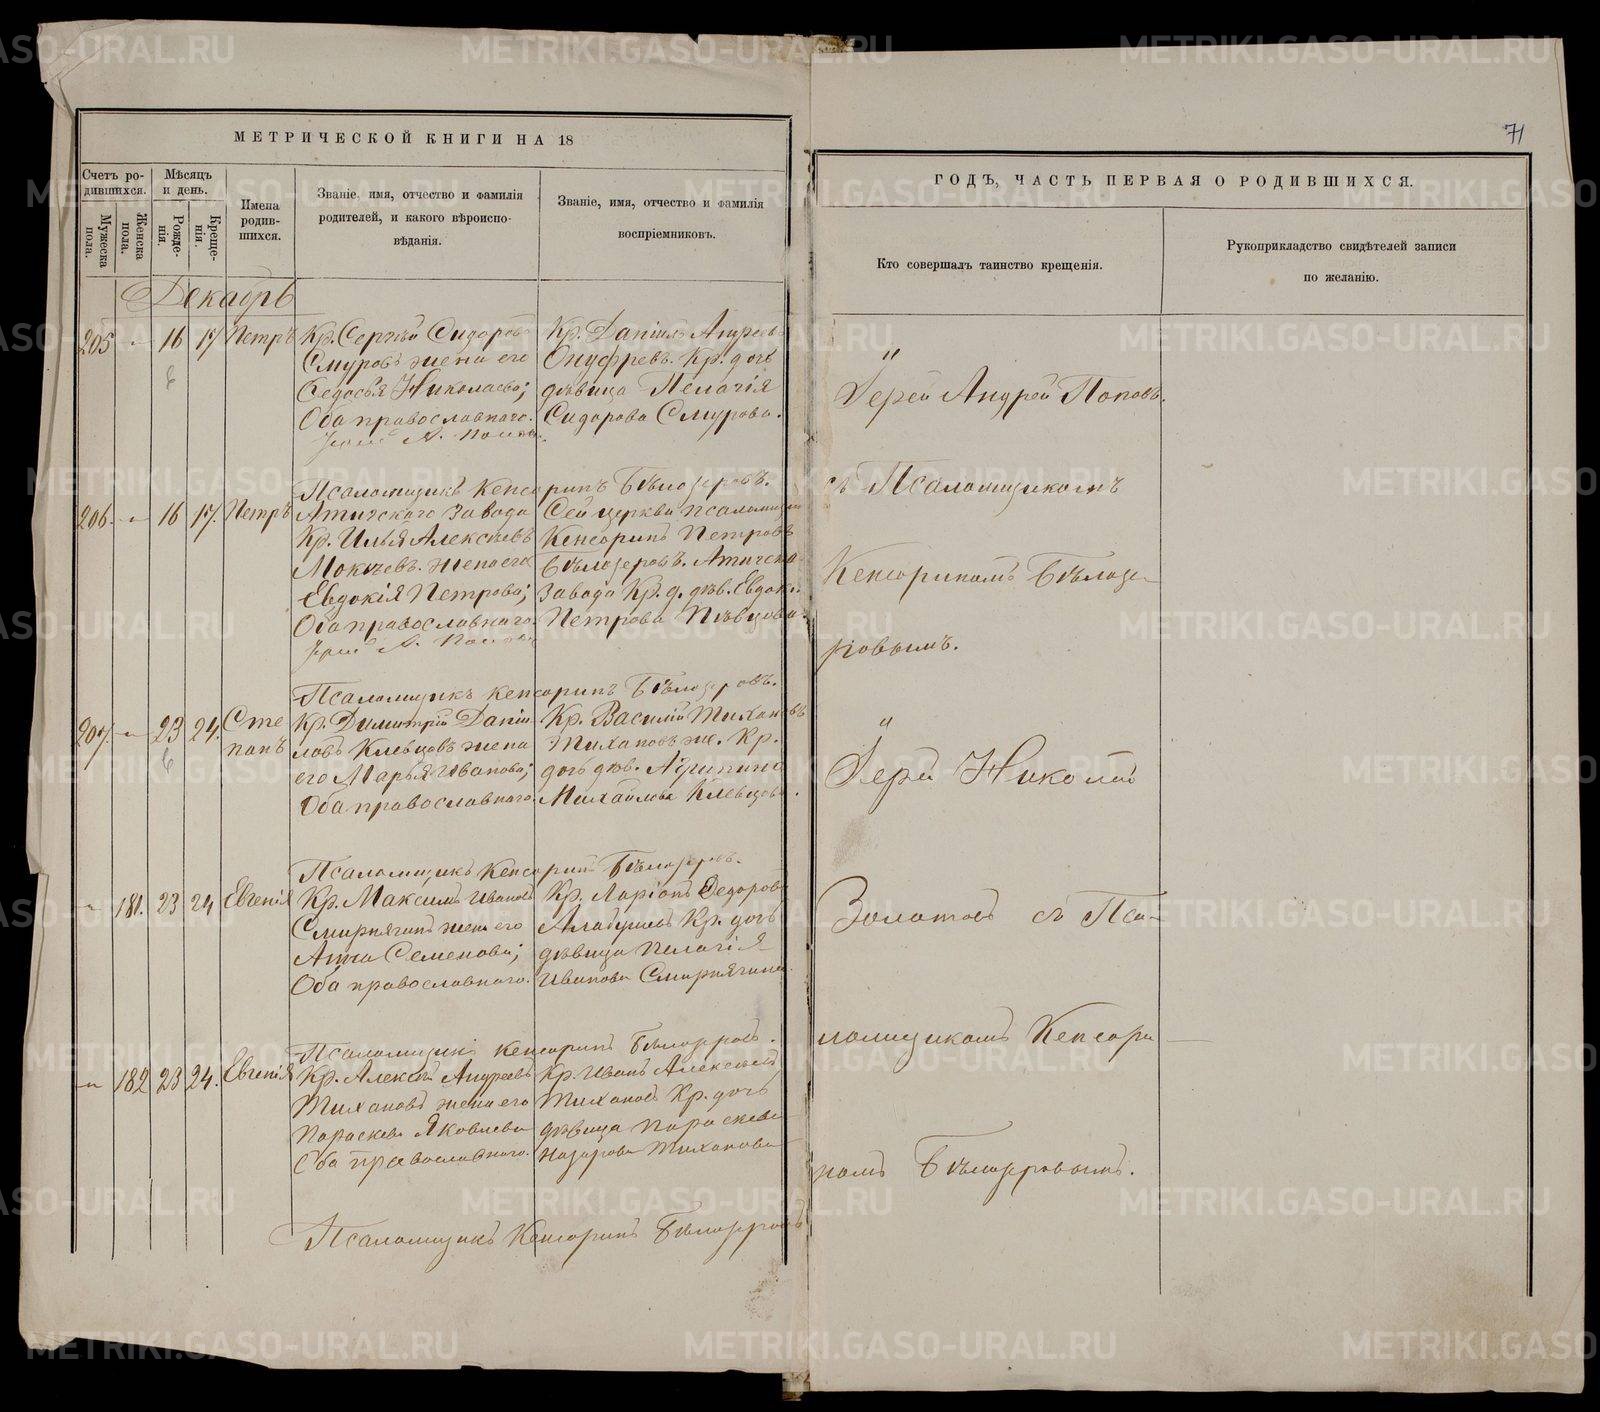 МЕТРИЧЕСКОЙ КНИГИ НА 18
Счетъ ро-
дившихся.
Мѣсяцъ
и день.
Мужеска
пола.
Женска
пола.
Рожде-
нія.
Креще-
нія.
Имена
родив-
шихся.
Званіе, имя, отчество и фамилія
родителей, и какого вѣроиспо-
вѣданія.
Званіе, имя, отчество и фамилія
воспріемниковъ.
Декабрь
205 16 17 Петръ Кр. Сергѣй Сидоровъ
Смуровъ жена его
Николаева;
Оба православнаго.
Кр. Даніилъ Андреевъ
Онуфревъ. Кр. дочь
дѣвица Пелагія
Сидорова Смурова.
Псаломщикъ Кенсоринъ Бѣлозеровъ.
206. 16 17. Петръ Атигскаго Завода
Кр. Илья Алексѣевъ
жена его
Евдокія Петрова;
Оба православнаго.
Сей церкви псаломщикъ
Кенсоринъ Петровъ
Бѣлозеровъ. Атигска
Завода Кр. д. дѣв. Евдокі
Петрова Пѣвцова.
Псаломщикъ Кенсоринъ Бѣлозеровъ.
207. 23 24. Сте
панъ
Кр. Димитрій Даніи
ловъ Клевцовъ жена
его Марья Иванова;
Оба православнаго.
Кр. Василій Тихановъ
Тихановъ же. Кр.
дочь дѣв. Агрипина
Михайлова Клевцова.
Псаломщикъ Кенсоринъ Бѣлозеровъ.
181. 23 24 Евгенія Кр. Максимъ Ивановъ
Смирнягинъ жена его
Анна Семенова;
Оба православнаго.
Кр. Ларіонъ Федоровъ
Кр. дочь
дѣвица Пелагія
Иванова Смирнягина
Псаломщикъ Кенсоринъ Бѣлозеровъ.
182 23 24. Евгенія Кр. Алексѣй Андреевъ
Тихановъ жена его
Параскева Яковлева
Оба православнаго.
Кр. Иванъ Алексѣевъ
Тихановъ Кр. дочь
дѣвица Параскева
Назарова Тиханова
Псаломщикъ Кенсоринъ Бѣлозеровъ
71
ГОДЪ, ЧАСТЬ ПЕРВАЯ О РОДИВШИХСЯ.
Кто совершалъ таинство крещенія.
Рукоприкладство свидѣтелей записи
по желанію.
Іерей Андрей Поповъ.
съ Псаломщикомъ
Кенсориномъ Бѣлозе-
ровымъ.
Іерей Николай
Золотовъ съ Пса-
ломщикомъ Кенсори
номъ Бѣлозеровымъ.
METRIKI.GASO-URAL.RU